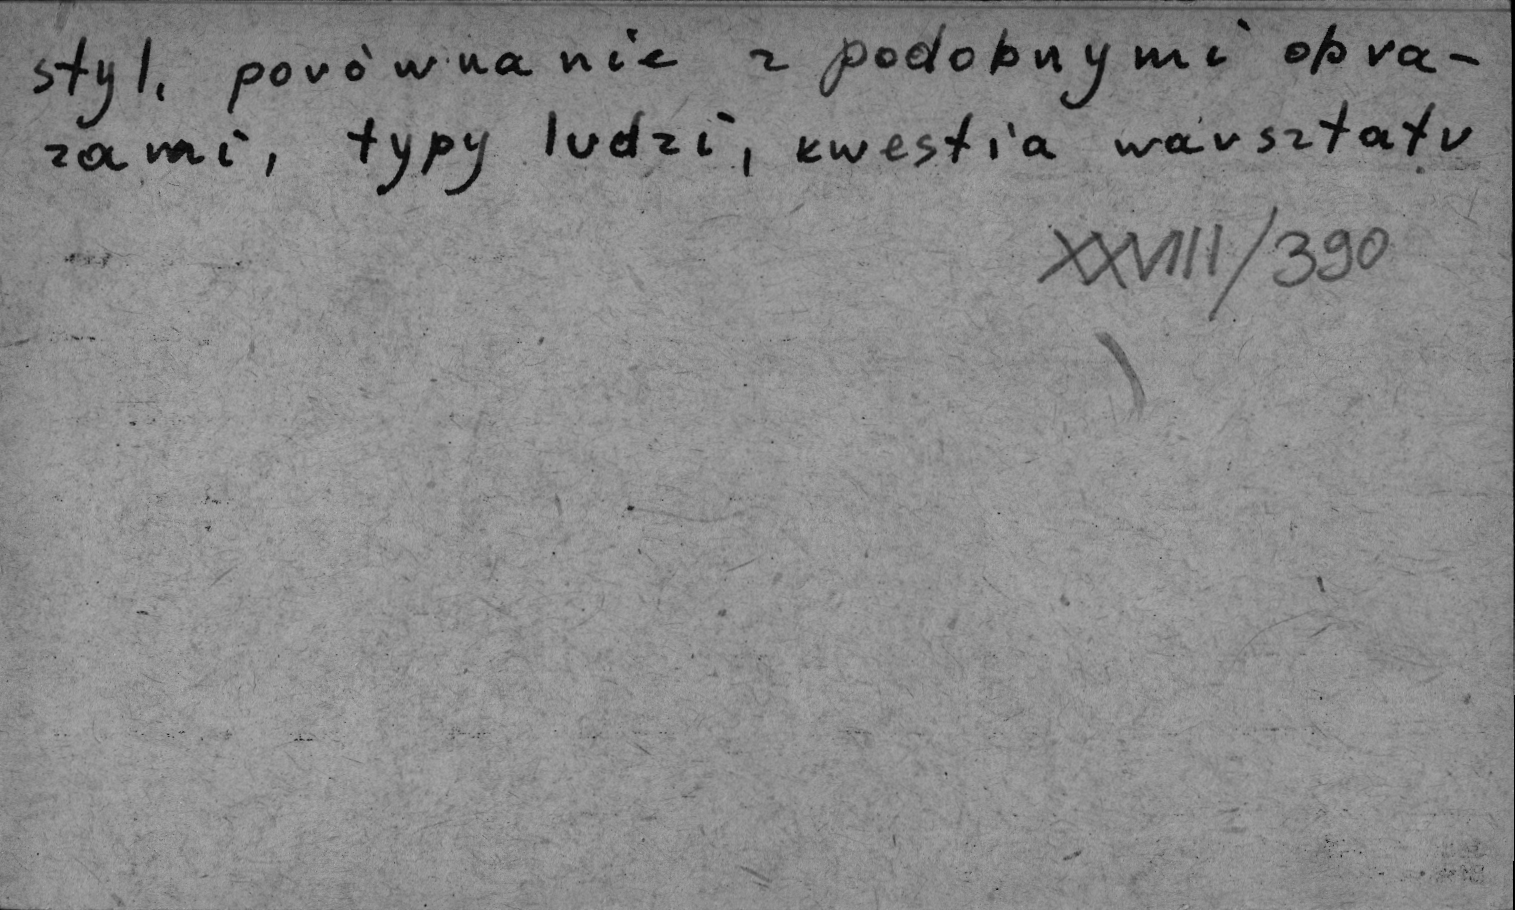 styl, porównanie z podobnymi obra-
zami, typy ludzi, kwestia warsztatu
XXVIII/390